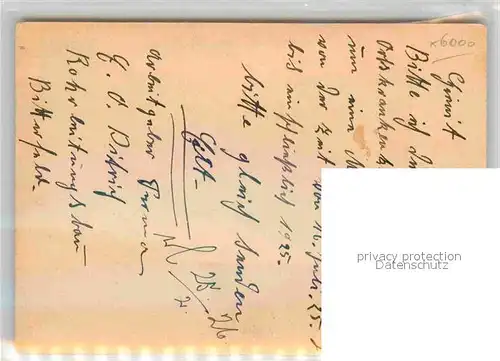 x6000
Hiermit
Bitte ich
Ortskrankenk
um eine
von der Zeit von 16. Juli. 25.
bis einschließlich 1925.
bitte gleich senden
Eilt.
Arbeitgeber Firma
E. O. Dietrich
Rohrleitungsbau
Bitterfeld.
28.
7. 26
privacy protection
Datenschutz